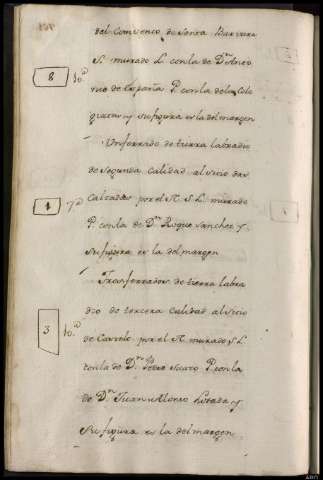 del Convento de Santa Barvara
S. murado L. con la de Dn. Anto
nio de España P. con la de la Cole
giata y su figura es la del margen
8
Un ferrado de tierra labradio
de segunda Calidad al sitio das
Calzadas por el N. S. L. murado
P. con la de Dn. Roque Sanchez y
su figura es la del margen
1
Tres ferrados de tierra labra
dio de tercera Calidad al sitio
de por el N. murado S. L.
con la de Dn. Pedro P. con la
de Dn. Juan Alonso Losada y
su figura es la del margen
3